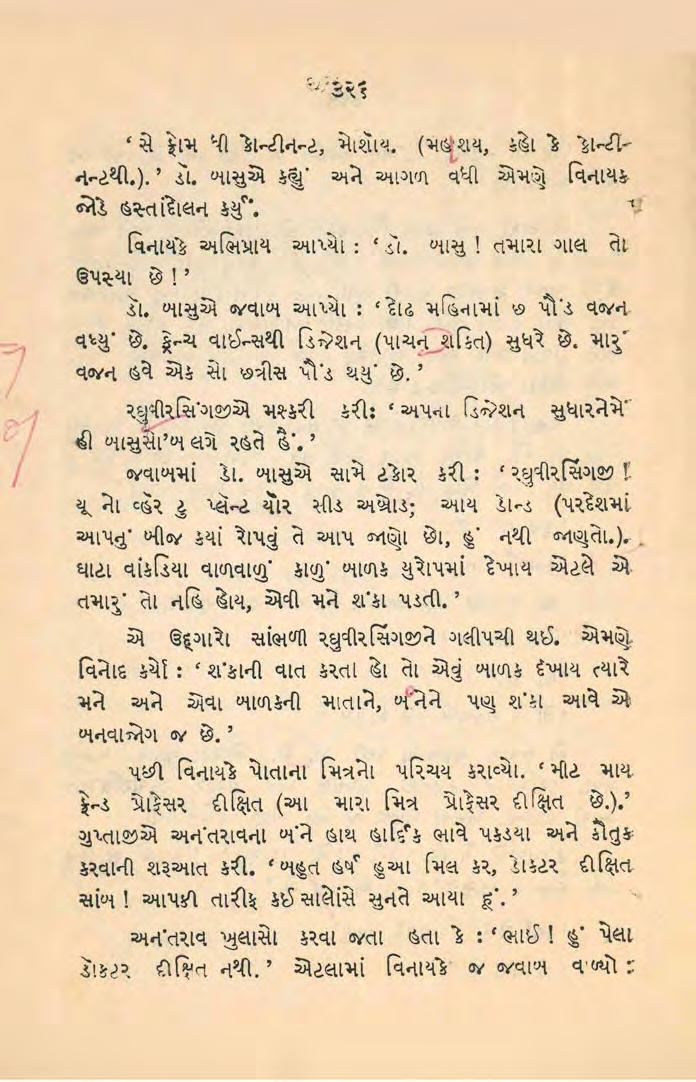 ૩૨૬
‘ સે ફ્રોમ ધી કોન્ટીનન્ટ, મોશૉય. (મહાશય, કહો કે કોન્ટી-
નન્ટથી.). ’ ડૉ. બાસુએ કહ્યું અને આગળ વધી એમણે વિનાયક
જોડે હસ્તાંદોલન કર્યું.
વિનાયકે અભિપ્રાય આપ્યો : ‘ ડૉ. બાસુ ! તમારા ગાલ તો
ઉપસ્યા છે ! ’
ડૉ. બાસુએ જવાબ આપ્યો : ‘ દોઢ મહિનામાં ૭ પૌંડ વજન
વધ્યું છે. ફ્રેન્ચ વાઈન્સથી ડિજેશન (પાચન શક્તિ) સુધરે છે. મારું
વજન હવે એક સો છત્રીસ પૌંડ થયું છે. ’
રઘુવીરસિંગજીએ મશ્કરી કરીઃ ‘ અપના ડિજેશન સુધારનેમેં
હી બાસુસો’બ લગે રહતે હૈં. ’
જવાબમાં ડો. બાસુએ સામે ટકોર કરી : ‘ રઘુવીરસિંગજી !
યૂ નો વ્હૅર ટુ પ્લૅન્ટ યૉર સીડ અબ્રોડ; આય ડોન્ડ (પરદેશમાં
આપનું બીજ કયાં રોપવું તે આપ જાણો છો, હું નથી જાણતો.).
ઘાટા વાંકડિયા વાળવાળું કાળું બાળક યુરોપમાં દેખાય એટલે એ
તમારું તો નહિ હોય, એવી મને શંકા પડતી. ’
એ ઉદ્દગારો સાંભળી રઘુવીરસિંગજીને ગલીપચી થઈ. એમણે
વિનોદ કર્યો : ‘ શંકાની વાત કરતા હો તો એવું બાળક દેખાય ત્યારે
મને અને એવા બાળકની માતાને, બંનેને પણ શંકા આવે એ
બનવાજોગ જ છે. ’
પછી વિનાયકે પોતાના મિત્રનો પરિચય કરાવ્યો. ‘ મીટ માય
ફ્રેન્ડ પ્રોફેસર દીક્ષિત (આ મારા મિત્ર પ્રોફેસર દીક્ષિત છે.).’
ગુપ્તાજીએ અનંતરાવના બંને હાથ હાર્દિક ભાવે પકડયા અને કૌતુક
કરવાની શરૂઆત કરી. ‘ બહુત હર્ષ હુઆ મિલ કર, ડોકટર દીક્ષિત
સાંબ ! આપકી તારીફ કઈ સાલોંસે સુનતે આયા હૂં. ’
અનંતરાવ ખુલાસો કરવા જતા હતા કે : ‘ ભાઈ ! હું પેલા
ડૉકટર દીક્ષિત નથી. ’ એટલામાં વિનાયકે જ જવાબ વાળ્યો :